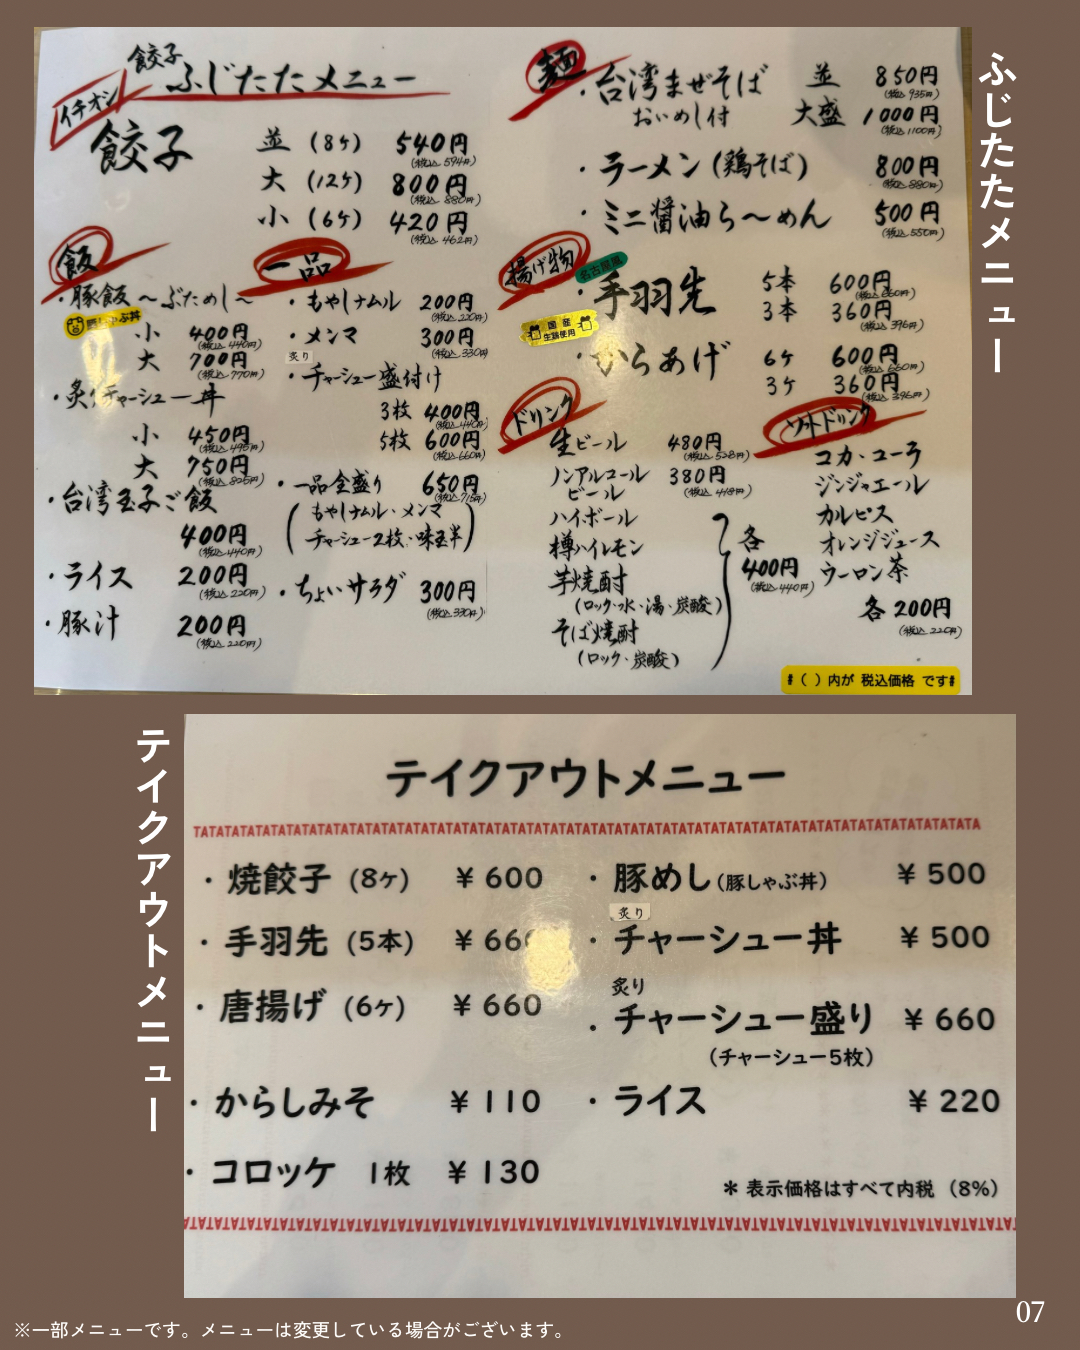 ふじたたメニュー
餃子
ふじたたメニュー
イチオシ
餃子
並 (8ヶ) 540円
(税込 594円)
大 (12ヶ) 800円
(税込 880円)
小 (6ヶ) 420円
(税込 462円)
飯
・豚飯 〜ぶためし〜
豚しゃぶ丼
小 400円
(税込 440円)
大 700円
(税込 770円)
・炙りチャーシュー丼
小 450円
(税込 495円)
大 750円
(税込 825円)
・台湾玉子ご飯
400円
(税込 440円)
・ライス 200円
(税込 220円)
・豚汁 200円
(税込 220円)
一品
・もやしナムル 200円
(税込 220円)
・メンマ 300円
(税込 330円)
炙り
・チャーシュー盛付け
3枚 400円
(税込 440円)
5枚 600円
(税込 660円)
・一品全盛り 650円
(税込 715円)
(もやしナムル・メンマ
チャーシュー2枚・味玉半)
・ちょいサラダ 300円
(税込 330円)
麺
・台湾まぜそば 並 850円
(税込 935円)
おいめし付 大盛 1000円
(税込 1100円)
・ラーメン(鶏そば) 800円
(税込 880円)
・ミニ醤油ら〜めん 500円
(税込 550円)
揚げ物
名古屋風
・手羽先 5本 600円
(税込 660円)
3本 360円
(税込 396円)
国産
生鶏使用
・からあげ 6ヶ 600円
(税込 660円)
3ヶ 360円
(税込 396円)
ドリンク
生ビール 480円
(税込 528円)
ノンアルコール
ビール 380円
(税込 418円)
ハイボール
樽ハイレモン
芋焼酎
(ロック・水・湯・炭酸)
そば焼酎
(ロック・炭酸)
各
400円
(税込 440円)
ソフトドリンク
コカ・コーラ
ジンジャエール
カルピス
オレンジジュース
ウーロン茶
各200円
(税込 220円)
#( )内が 税込価格 です#
テイクアウトメニュー
テイクアウトメニュー
TATATATATATATATATATATATATATATATATATATATATATATATATATATATATATATATATATA
・焼餃子 (8ヶ) ¥600
・手羽先 (5本) ¥66
・唐揚げ (6ヶ) ¥660
・からしみそ ¥110
・コロッケ 1枚 ¥130
・豚めし(豚しゃぶ丼) ¥500
炙り
・チャーシュー丼 ¥500
炙り
・チャーシュー盛り ¥660
(チャーシュー5枚)
・ライス ¥220
＊表示価格はすべて内税 (8%)
※一部メニューです。メニューは変更している場合がございます。
07